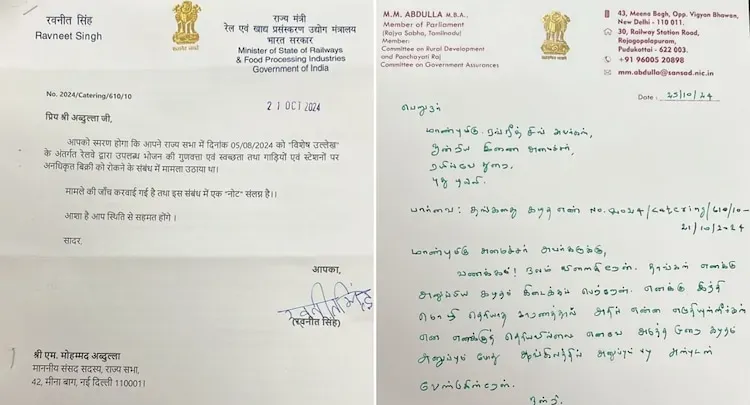 रवनीत सिंह
Ravneet Singh
राज्य मंत्री
रेल एवं खाद्य प्रसंस्करण उद्योग मंत्रालय
भारत सरकार
Minister of State of Railways
& Food Processing Industries
Government of India
No. 2024/Catering/610/10
21 OCT 2024
प्रिय श्री अब्दुल्ला जी,
आपको स्मरण होगा कि आपने राज्य सभा में दिनांक 05/08/2024 को "विशेष उल्लेख"
के अंतर्गत रेलवे द्वारा उपलब्ध भोजन की गुणवत्ता एवं स्वच्छता तथा गाड़ियों एवं स्टेशनों पर
अनधिकृत बिक्री को रोकने के संबंध में मामला उठाया था।
मामले की जाँच करवाई गई है तथा इस संबंध में एक "नोट" संलग्न है।।
आशा है आप स्थिति से सहमत होंगे ।
सादर,
आपका,
रवनीत सिंह
(रवनीत सिंह)
श्री एम. मोहम्मद अब्दुल्ला
माननीय संसद सदस्य, राज्य सभा,
42, मीना बाग, नई दिल्ली 110001।
M.M. ABDULLA M.B.A.,
Member of Parliament
(Rajya Sabha, Tamilnadu)
Member:
Committee on Rural Development
and Panchayati Raj
Committee on Government Assurances
43, Meena Bagh, Opp. Vigyan Bhawan,
New Delhi - 110 011.
30, Railway Station Road,
Rajagopalapuram,
Pudukottai - 622 003.
+91 96005 20898
mm.abdulla@sansad.nic.in
Date : 25/10/24
பெறுநர்
மாண்புமிகு ரவ்நீத் சிங் அவர்கள்,
ஒன்றிய இணை அமைச்சர்,
ரயில்வே துறை,
புது டில்லி.
பார்வை: தங்களது கடித எண் No. 2024/Catering/610/10-
21/10/2024
மாண்புமிகு அமைச்சர் அவர்களுக்கு,
வணக்கம்! நலம் விளைகிறேன். தாங்கள் எனக்கு
அனுப்பிய கடிதம் கிடைக்கப் பெற்றேன். எனக்கு இந்தி
மொழி தெரியாத காரணத்தால் அதில் என்ன எழுதியுள்ளீர்கள்
என எனக்குத் தெரியவில்லை எனவே அடுத்த முறை கடிதம்
அனுப்பும் போது ஆங்கிலத்தில் அனுப்ப அன்புடன்
வேண்டுகிறேன்.
நன்றி.